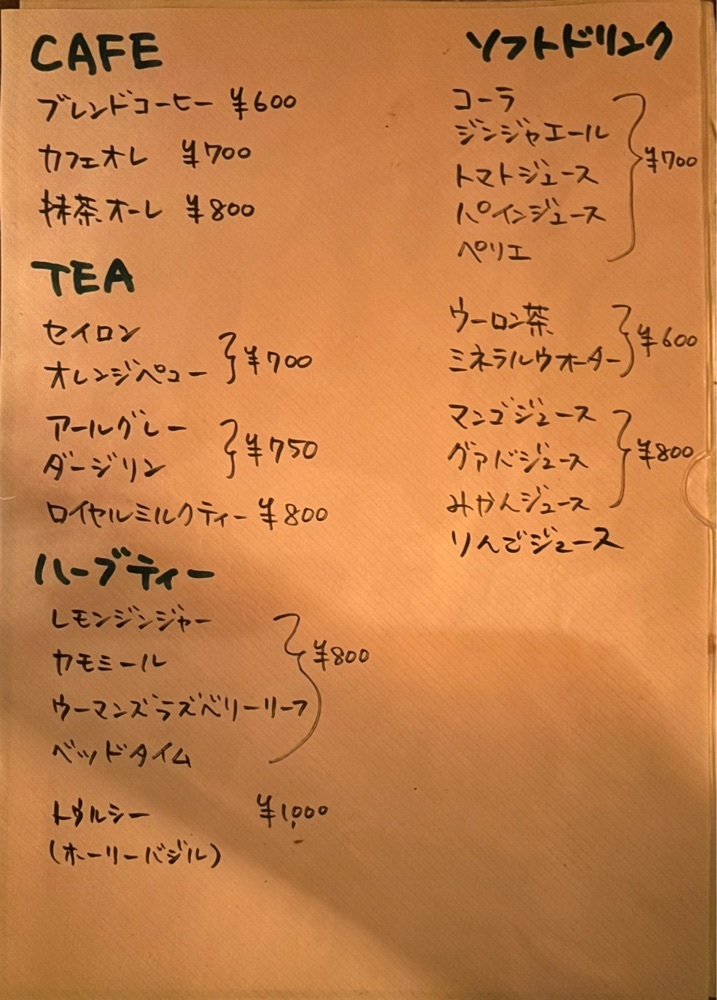 CAFE
ブレンドコーヒー ¥600
カフェオレ ¥700
抹茶オーレ ¥800
TEA
セイロン
オレンジペコー
¥700
アールグレー
ダージリン
¥750
ロイヤルミルクティー ¥800
ハーブティー
レモンジンジャー
カモミール
ウーマンズラズベリーリーフ
ベッドタイム
¥800
トゥルシー ¥1,000
(ホーリーバジル)
ソフトドリンク
コーラ
ジンジャエール
トマトジュース
パインジュース
ペリエ
¥700
ウーロン茶
ミネラルウオーター
¥600
マンゴジュース
グァバジュース
みかんジュース
りんごジュース
¥800